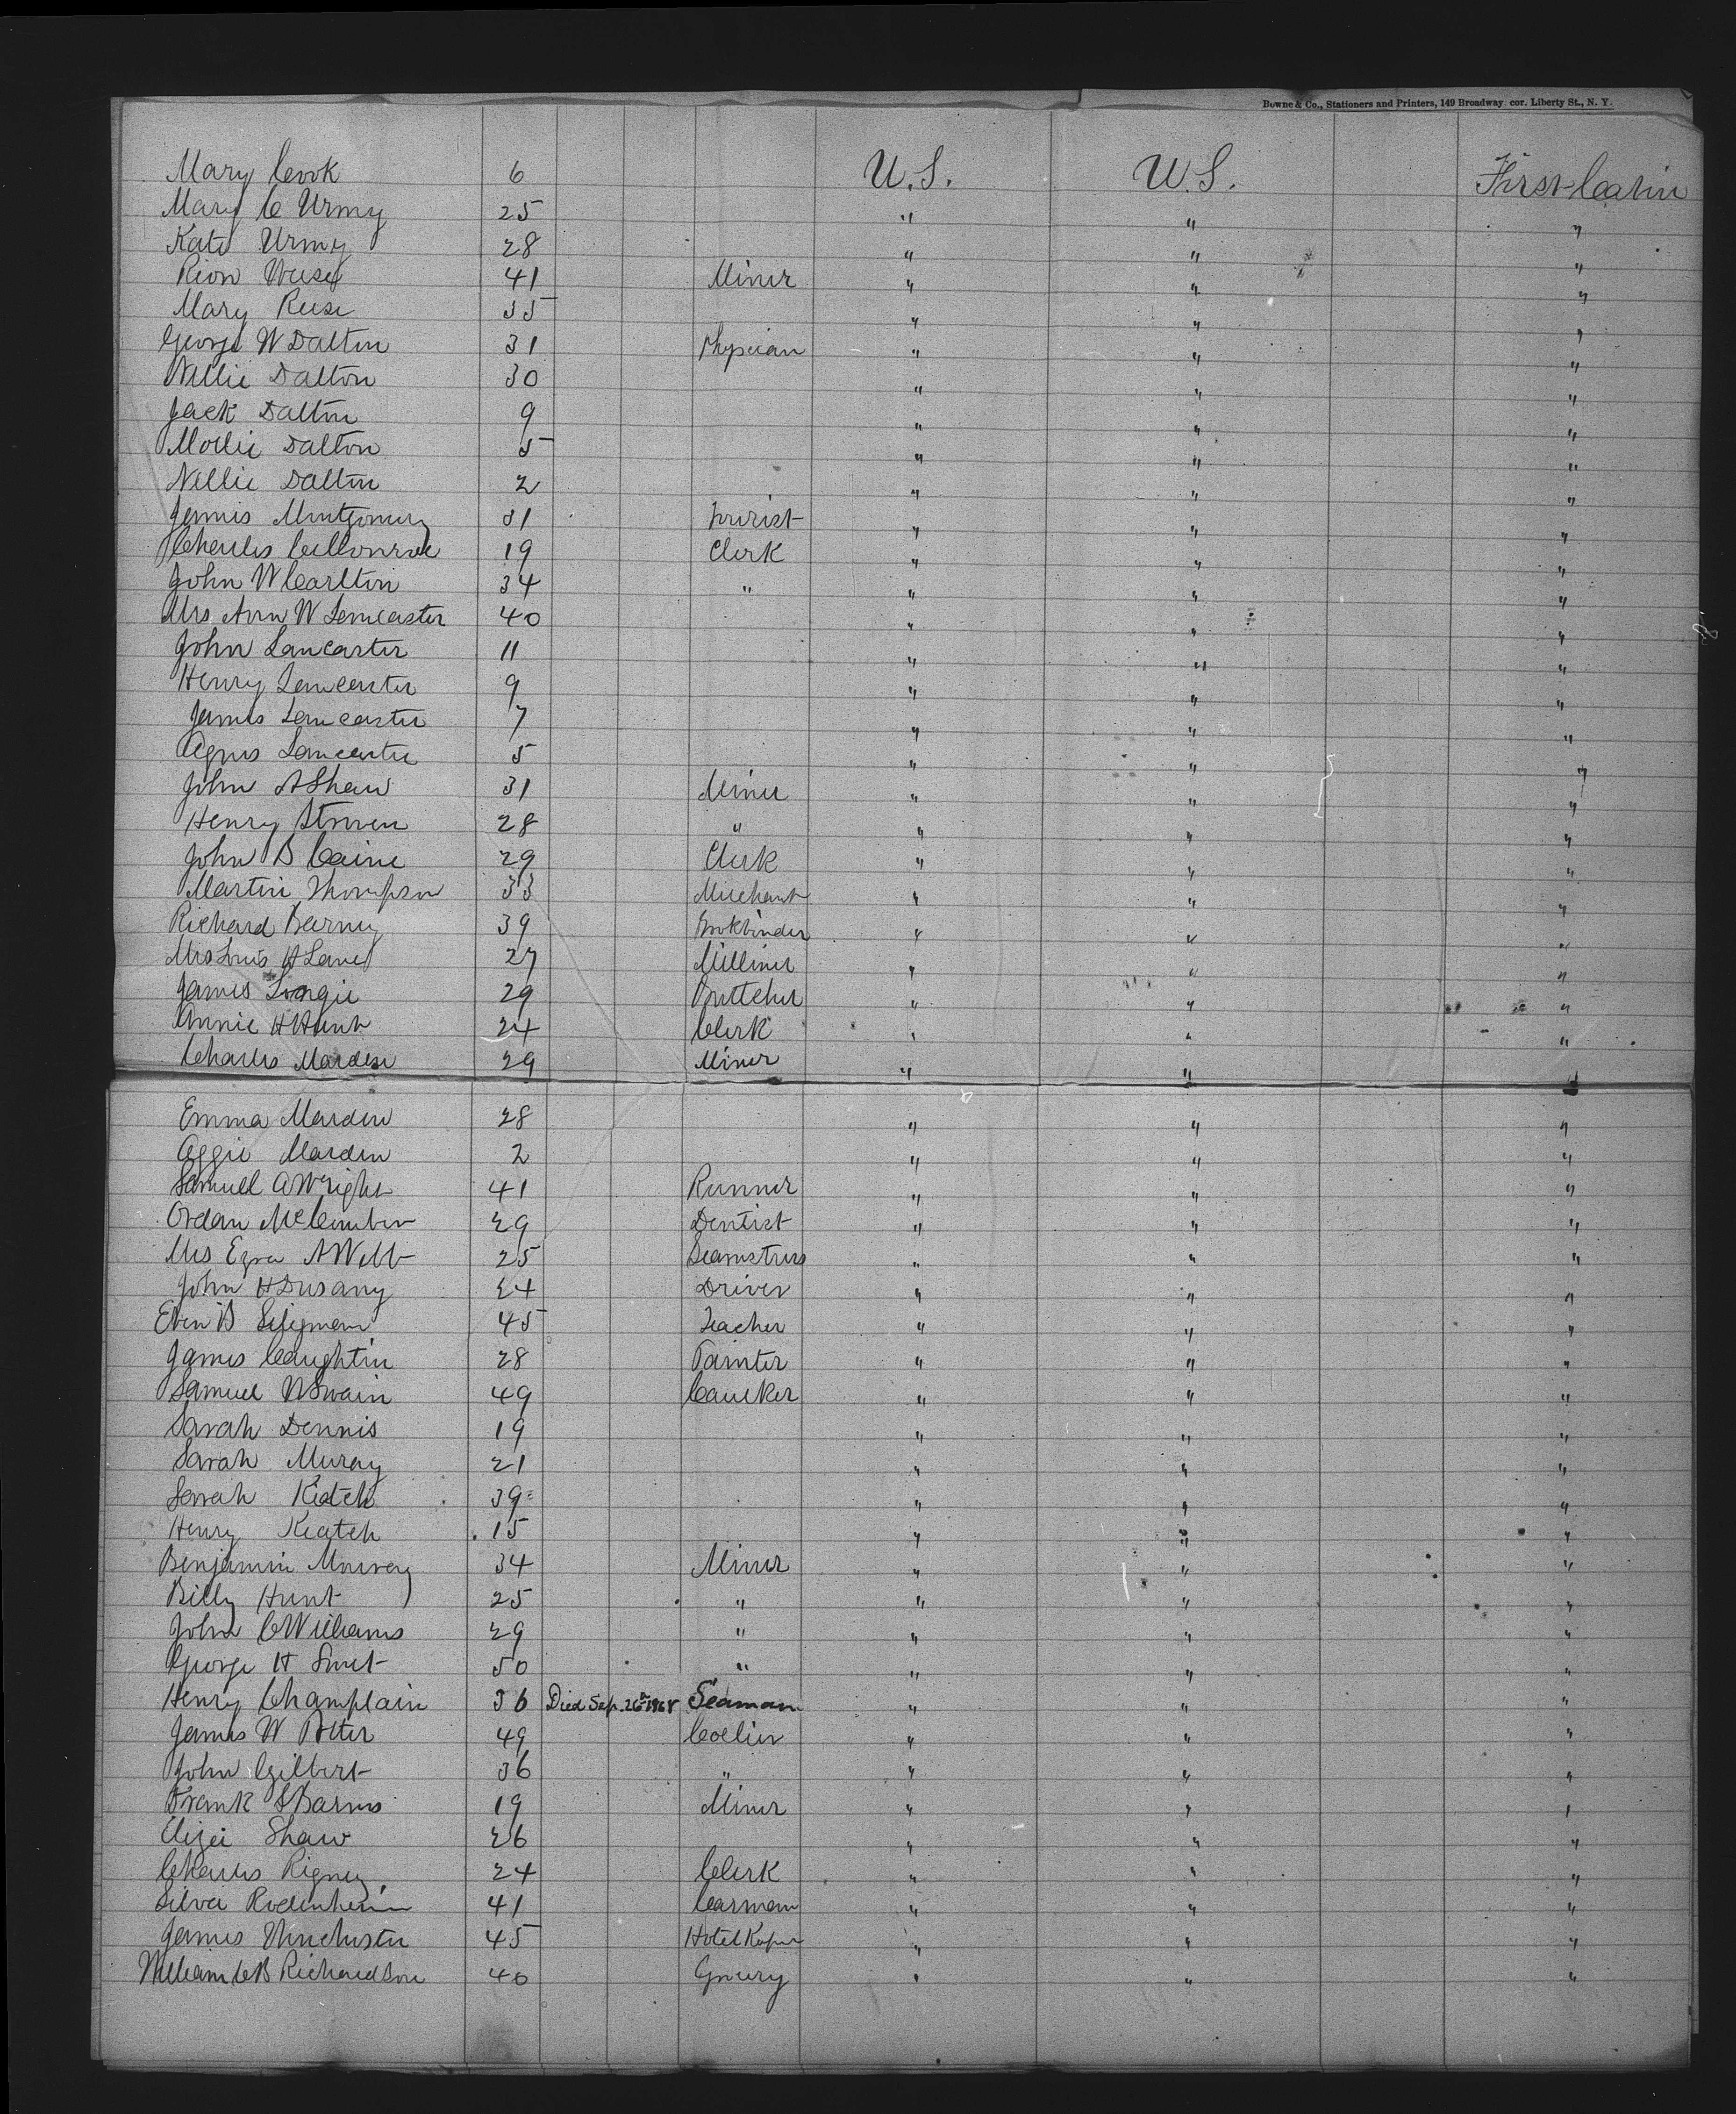 Bowne & Co., Stationers and Printers, 149 Broadway, cor. Liberty St., N. Y.
Mary Cook 6 U.S. U.S. First Cabin
Mary C Urmy 25 " " "
Kate Urmy 28 " " "
41 Miner " " "
Mary Reese 35 " " "
George W Dalton 31 Physician " " "
Nellie Dalton 30 " " "
Jack Dalton 9 " " "
Mollie Dalton 5 " " "
Nellie Dalton 2 " " "
James Montgomery 31 Tourist " " "
Charles 19 Clerk " " "
John W Carlton 34 " " " "
Mrs Ann W Lancaster 40 " " "
John Lancaster 11 " " "
Henry Lancaster 9 " " "
James Lancaster 7 " " "
Agnes Lancaster 5 " " "
John A Shaw 31 Miner " " "
Henry 28 " " " "
John B Caine 29 Clerk " " "
Martin Thompson 33 Merchant " " "
Richard Barney 39 Bookbinder " " "
Mrs Louis H Lane 27 Milliner " " "
James 29 Buttcher " " "
Annie H Hunt 24 Clerk " " "
Charles Marden 29 Miner " " "
Emma Marden 28 " " "
Aggie Marden 2 " " "
Samuel A Wright 41 Runner " " "
McCumber 29 Dentist " " "
Mrs Ezra A Webb 25 Seamstress " " "
John H Dusany 24 Driver " " "
Eben B Seligman 45 Teacher " " "
James Caughtin 28 Painter " " "
Samuel N Swain 49 Caulker " " "
Sarah Dennis 19 " " "
Sarah Muray 21 " " "
Sarah Keatch 39 " " "
Henry Keatch 15 " " "
Benjamin Murray 34 Miner " " "
Billy Hunt 25 " " " "
John C Williams 29 " " " "
George H Smet 50 " " " "
Henry Champlain 36 Died Sep. 26th 1868 Seaman " " "
James W Potter 49 Collier " " "
John Gilbert 36 " " " "
Frank S Barnes 19 Miner " " "
Shaw 26 " " "
Charles Rigney 24 Clerk " " "
Silva Rodenheim 41 Carman " " "
James Winchester 45 Hotel Keeper " " "
William C B Richardson 40 Grocery " " "